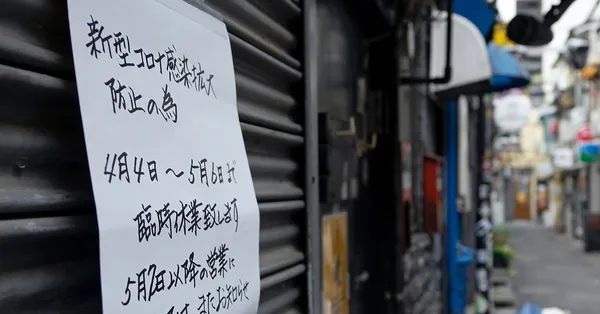 新型コロナ感染拡大
防止の為
4月4日〜5月6日まで
臨時休業致します
5月2日以降の営業に
またお知らせ